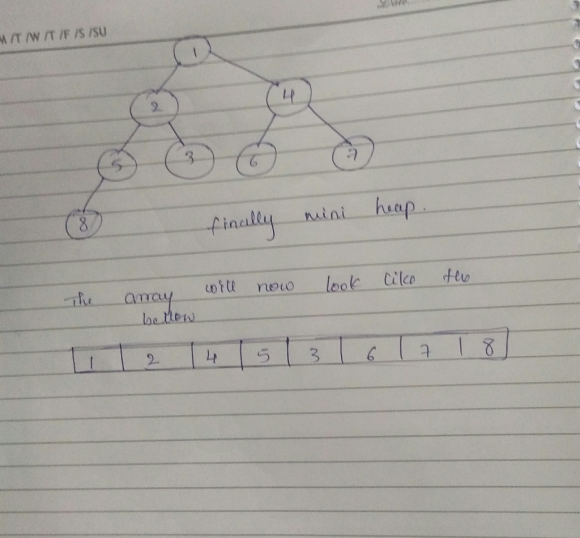 M /T /W /T /F /S /SU
1
2 4
5 3 6 7
8
finally mini heap.
The array will now look like the
bellow
1 2 4 5 3 6 7 8